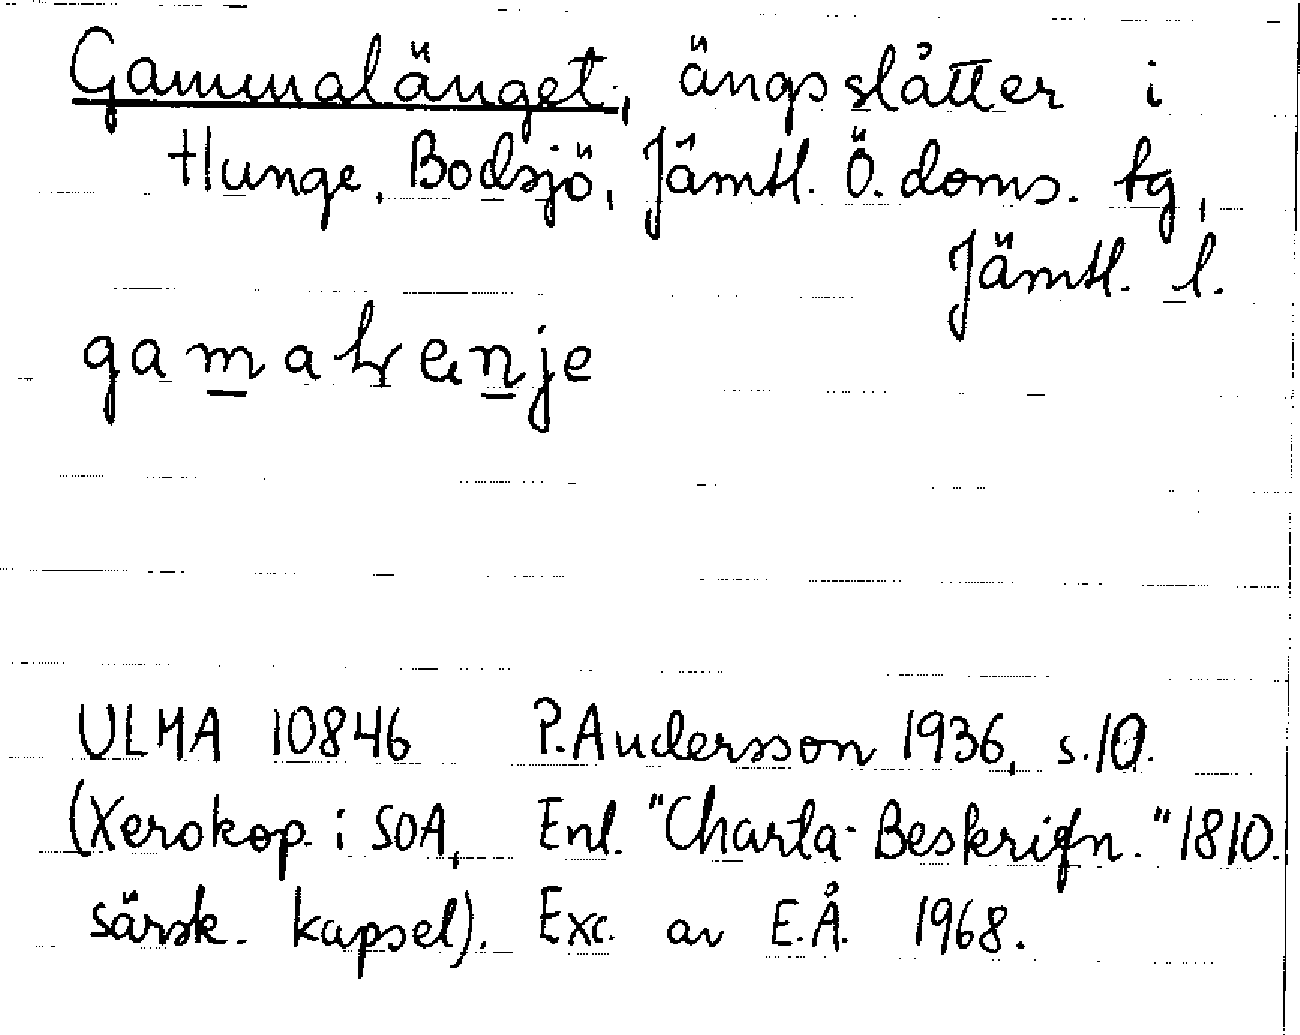 Gammalänget, ängsslåtter i
Hunge, Bodsjö, Jämtl. Ö. doms. tg,
Jämtl. l.
ULMA 10846 P. Andersson 1936, s. 10.
(Xerokop. i SOA, Enl. "Charta-Beskrifn." 1810.
särsk. kapsel). Exc. av E.Å. 1968.